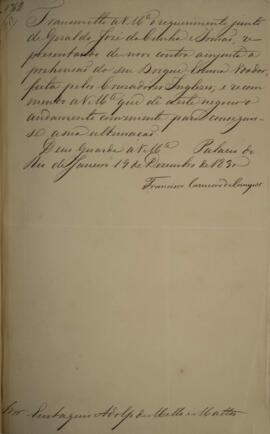 Transmitto a V. M.ce o requerimento junto
de Geraldo José da Cunha e Irmão, re-
presentando de novo contra a injusta a
prehensão do seu Bergue
feita pelos Cruzadores Inglezes; e recom-
mendo a V. M.ce que dê a este negocio o
andamento conveniente para conseguir-
se a sua ultimação.
Deus Guarde a V. M.ce Palacio do
Rio de Janeiro 19 de Dezembro de 1830
Francisco Carneiro de Campos
Snr. Eustaquio Adolfo de Mello e Mattos